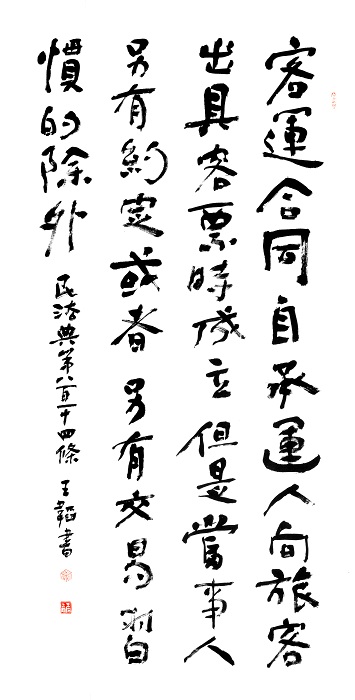 客運合同自承運人向旅客
出具客票時成立但是當事人
另有約定或者另有交易習
慣的除外
民法典第八百一十四條 王韜書